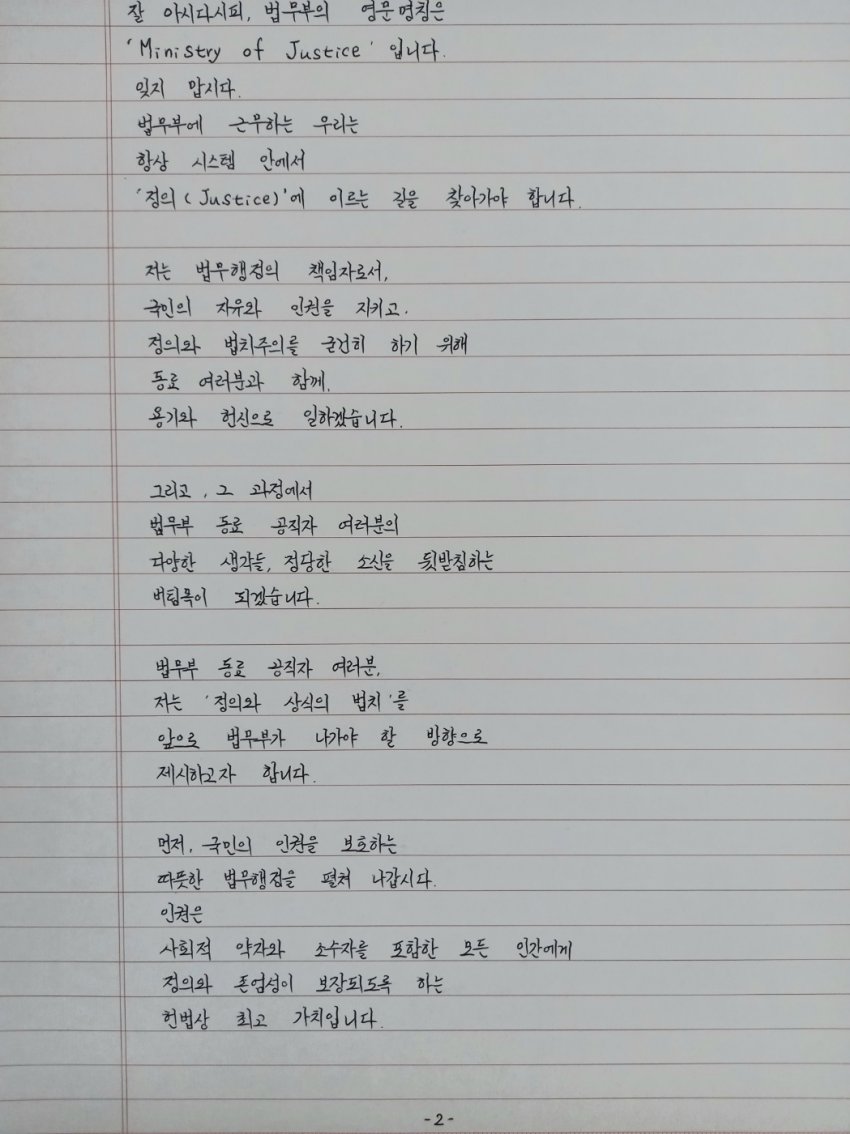 잘 아시다시피, 법무부의 영문명칭은
'Ministry of Justice' 입니다.
잊지 맙시다.
법무부에 근무하는 우리는
항상 시스템 안에서
'정의(Justice)'에 이르는 길을 찾아가야 합니다.
저는 법무행정의 책임자로서,
국민의 자유와 인권을 지키고,
정의와 법치주의를 굳건히 하기 위해
동료 여러분과 함께,
용기와 헌신으로 일하겠습니다.
그리고, 그 과정에서
법무부 동료 공직자 여러분의
다양한 생각들, 정당한 소신을 뒷받침하는
버팀목이 되겠습니다.
법무부 동료 공직자 여러분,
저는 '정의와 상식의 법치'를
앞으로 법무부가 나가야 할 방향으로
제시하고자 합니다.
먼저, 국민의 인권을 보호하는
따뜻한 법무행정을 펼쳐 나갑시다.
인권은
사회적 약자와 소수자를 포함한 모든 인간에게
정의와 존엄성이 보장되도록 하는
헌법상 최고 가치입니다.
-2-